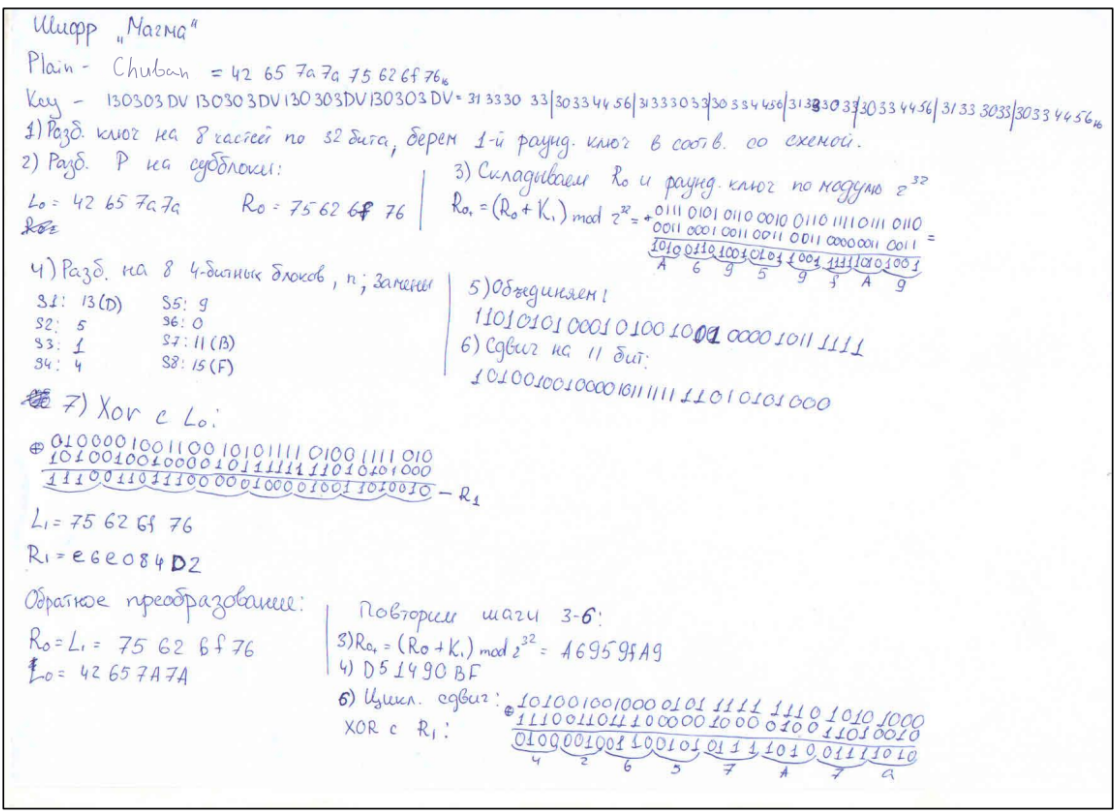 Шифр „Магма"
Plain - Chuban = 42 65 7a 7a 75 62 6f 76₁₆
Key - 130303DV 130303DV 130303DV 130303DV = 31 3330 33|30334456|31333033|30334456|31333033|30334456|31333033|30334456₁₆
1) Разб. ключ на 8 частей по 32 бита, берем 1-й раунд. ключ в соотв. со схемой.
2) Разб. P на субблоки:
L₀ = 42 65 7a 7a R₀ = 75 62 6f 76
3) Складываем R₀ и раунд. ключ по модулю 2³²
R₀₁ = (R₀ + K₁) mod 2³² = + 0111 0101 0110 0010 0110 1111 0111 0110
0011 0001 0011 0011 0011 0000 0011 0011 =
1010 0110 1001 0101 1001 1111 1010 1001
A 6 9 5 9 f A 9
4) Разб. на 8 4-битных блоков, п; замены
S1: 13(D) S5: 9
S2: 5 S6: 0
S3: 1 S7: 11(B)
S4: 4 S8: 15(F)
5) Объединяем:
11010101 0001 0100 1001 0000 1011 1111
6) Сдвиг на 11 бит:
10100100100001011111111010101000
7) Xor с L₀:
⊕ 01000010011001010111101001111010
10100100100001011111111010101000
11100110111000001000010011010010 - R₁
L₁ = 75 62 6f 76
R₁ = e6e084D2
Обратное преобразование:
R₀ = L₁ = 75 62 6f 76
L₀ = 42 65 7A 7A
Повторим шаги 3-6:
3) R₀₁ = (R₀ + K₁) mod 2³² = A6959fA9
4) D51490BF
6) Цикл. сдвиг: ⊕ 101001001000 0101 1111 1110 1010 1000
XOR с R₁: 11100110111000001000 0100 11010010
01000010011001010111101001111010
4 2 6 5 7 A 7 a